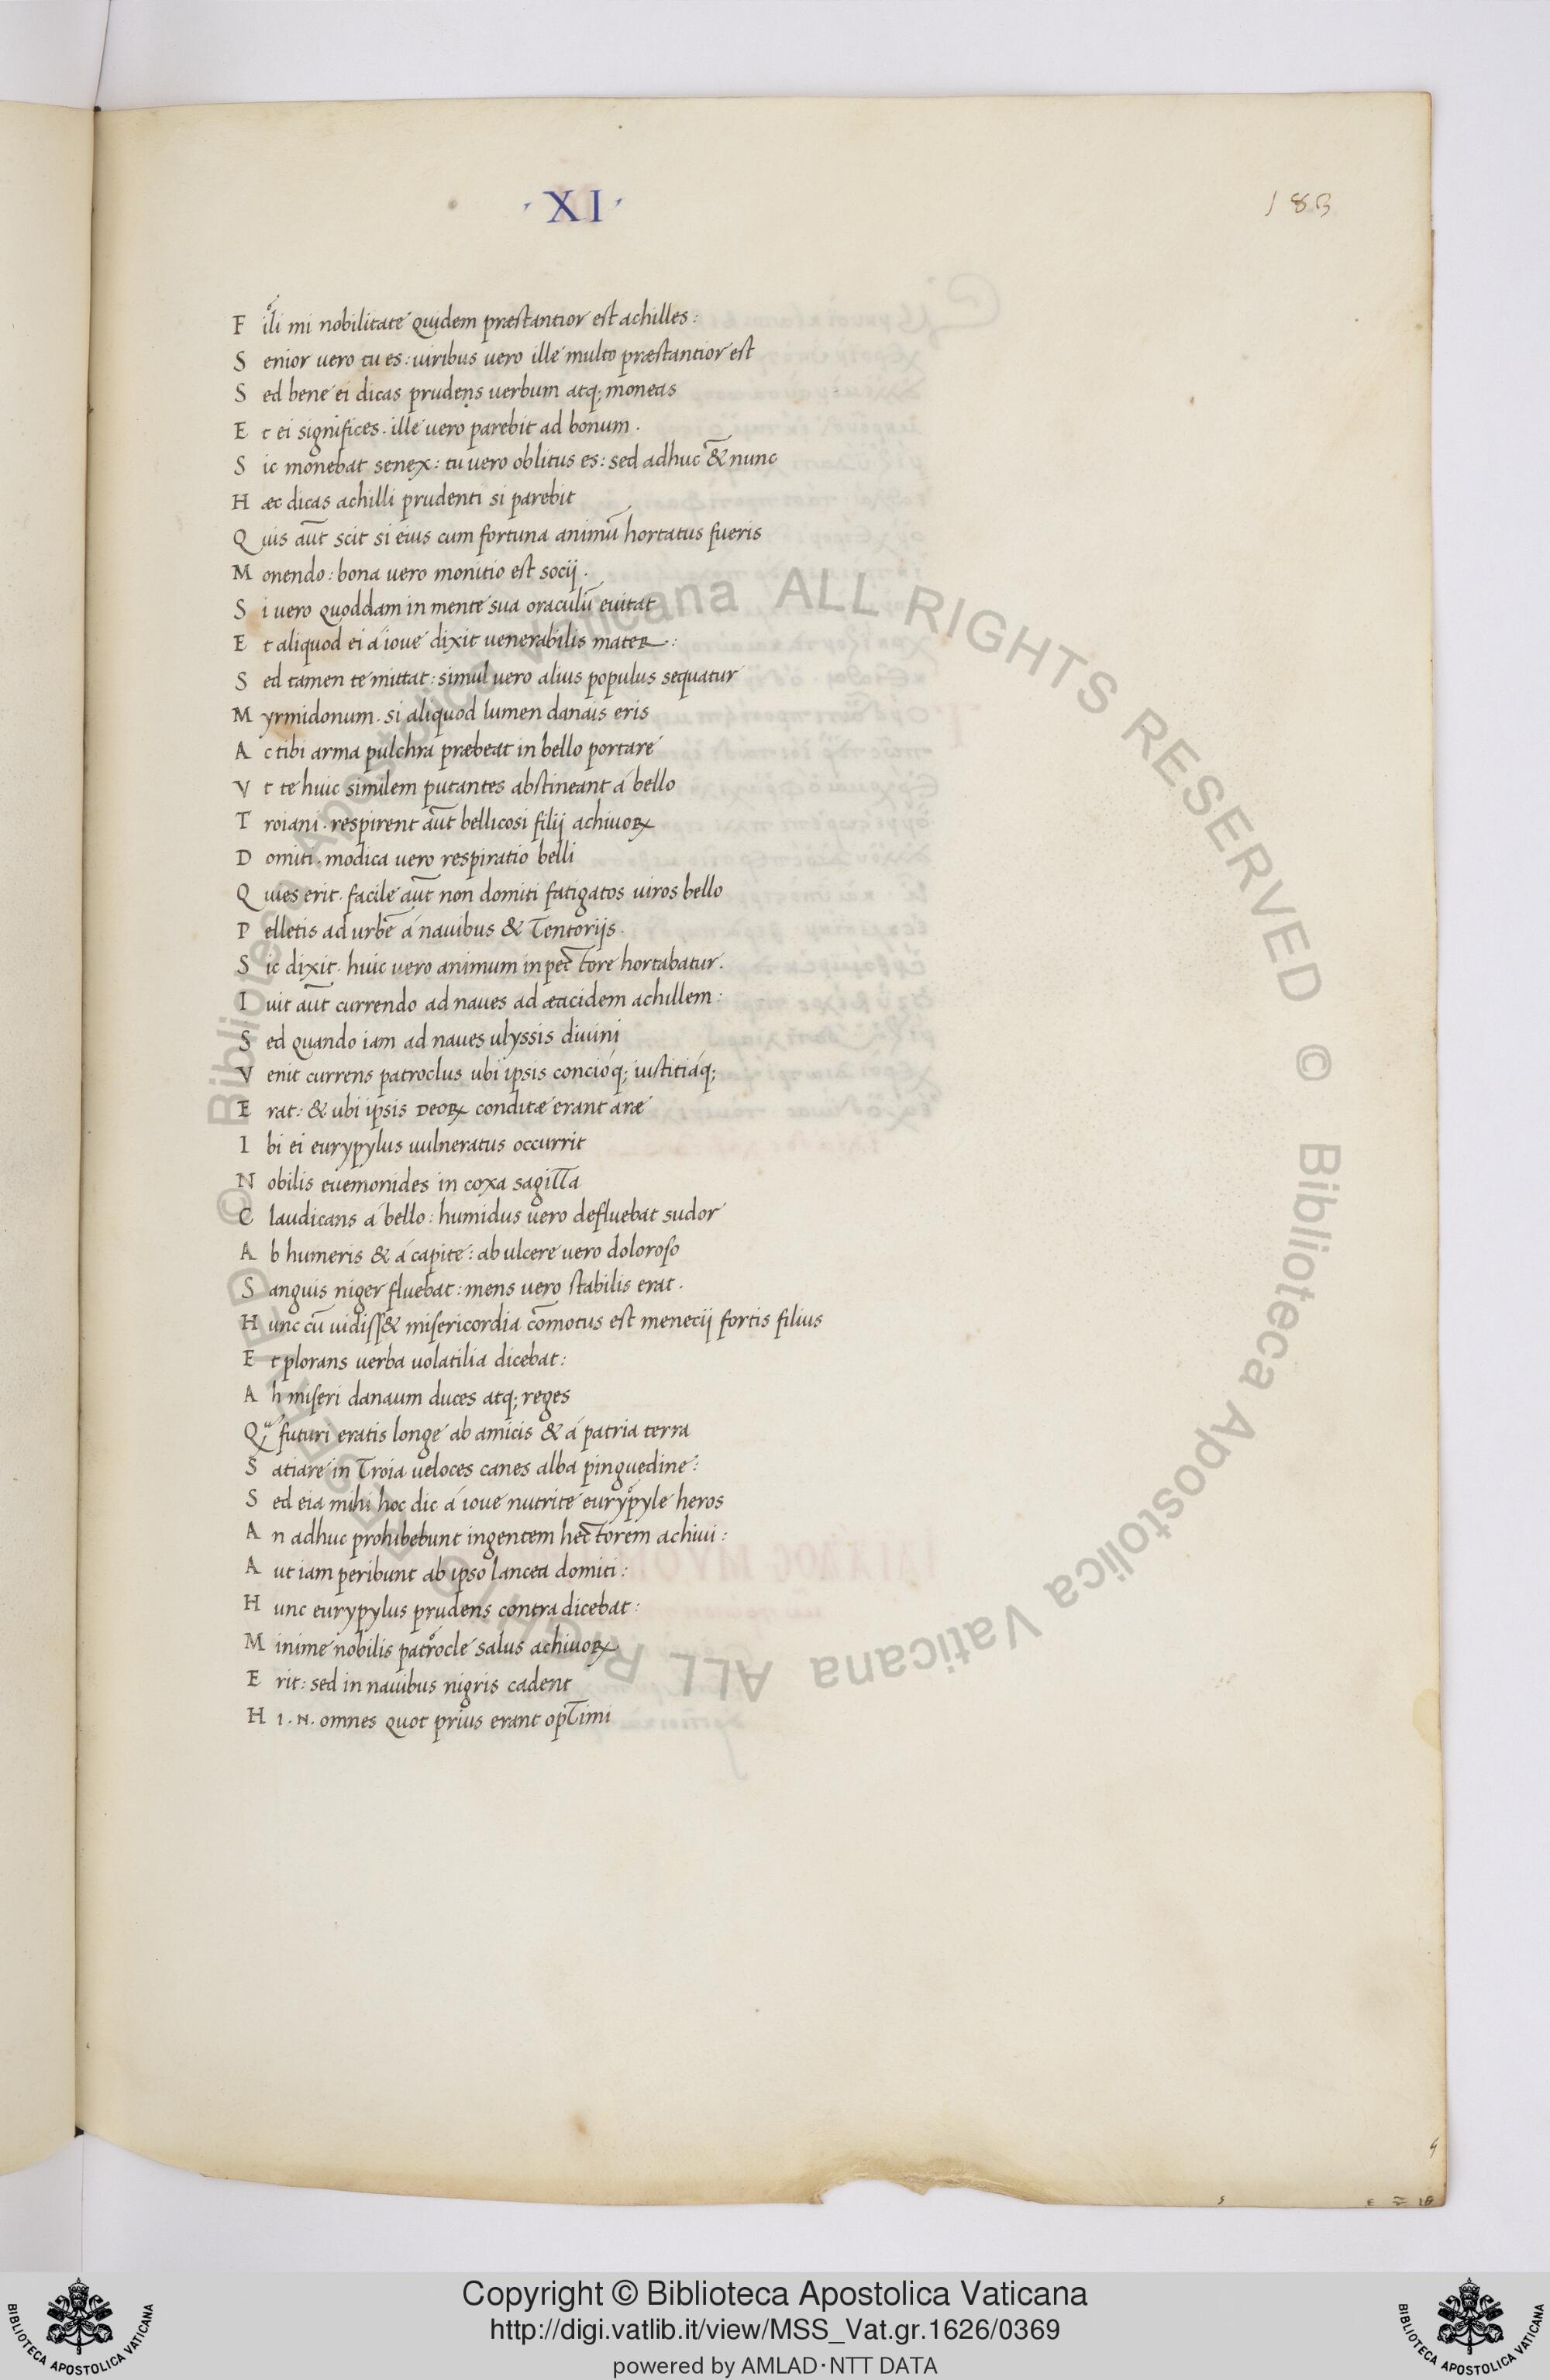 · XI ·
183
F ili mi nobilitate quidem præstantior est achilles :
S enior uero tu es : uiribus uero ille multo præstantior est
S ed bene ei dicas prudens uerbum atq; moneas
E t ei significes . ille uero parebit ad bonum .
S ic monebat senex : tu uero oblitus es : sed adhuc & nunc
H æc dicas achilli prudenti si parebit
Q uis aūt scit si eius cum fortuna animū hortatus fueris
M onendo : bona uero monitio est socij .
S i uero quoddam in mente sua oraculū euitat
E t aliquod ei á ioue dixit uenerabilis mater :
S ed tamen te mittat : simul uero alius populus sequatur
M yrmidonum . si aliquod lumen danais eris
A c tibi arma pulchra præbeat in bello portare
V t te huic similem putantes abstineant á bello
T roiani . respirent aūt bellicosi filij achiuoꝝ
D omiti . modica uero respiratio belli
Q uies erit . facile aūt non domiti fatigatos uiros bello
P elletis ad urbē á nauibus & tentorijs .
S ic dixit . huic uero animum in pectore hortabatur .
I uit aūt currendo ad naues ad æacidem achillem :
S ed quando iam ad naues ulyssis diuini
V enit currens patroclus ubi ipsis concióq; iustitiáq;
E rat : & ubi ipsis deoꝝ conditæ erant aræ
I bi ei eurypylus uulneratus occurrit
N obilis euemonides in coxa sagitta
C laudicans á bello : humidus uero defluebat sudor
A b humeris & á capite : ab ulcere uero doloroso
S anguis niger fluebat : mens uero stabilis erat .
H unc cū uidiss& misericordia cōmotus est menecij fortis filius
E t plorans uerba uolatilia dicebat :
A h miseri danaum duces atq; reges
Q futuri eratis longe ab amicis & á patria terra
S atiare in troia ueloces canes alba pinguedine :
S ed eia mihi hoc dic á ioue nutrite eurypyle heros
A n adhuc prohibebunt ingentem hectorem achiui :
A ut iam peribunt ab ipso lancea domiti :
H unc eurypylus prudens contra dicebat :
M inime nobilis patrocle salus achiuoꝝ
E rit : sed in nauibus nigris cadent
H i . n . omnes quot prius erant optimi
© Biblioteca Apostolica Vaticana ALL RIGHTS RESERVED © Biblioteca Apostolica Vaticana ALL RIGHTS RESERVED
Copyright © Biblioteca Apostolica Vaticana
http://digi.vatlib.it/view/MSS_Vat.gr.1626/0369
powered by AMLAD·NTT DATA
BIBLIOTECA APOSTOLICA VATICANA
BIBLIOTECA APOSTOLICA VATICANA